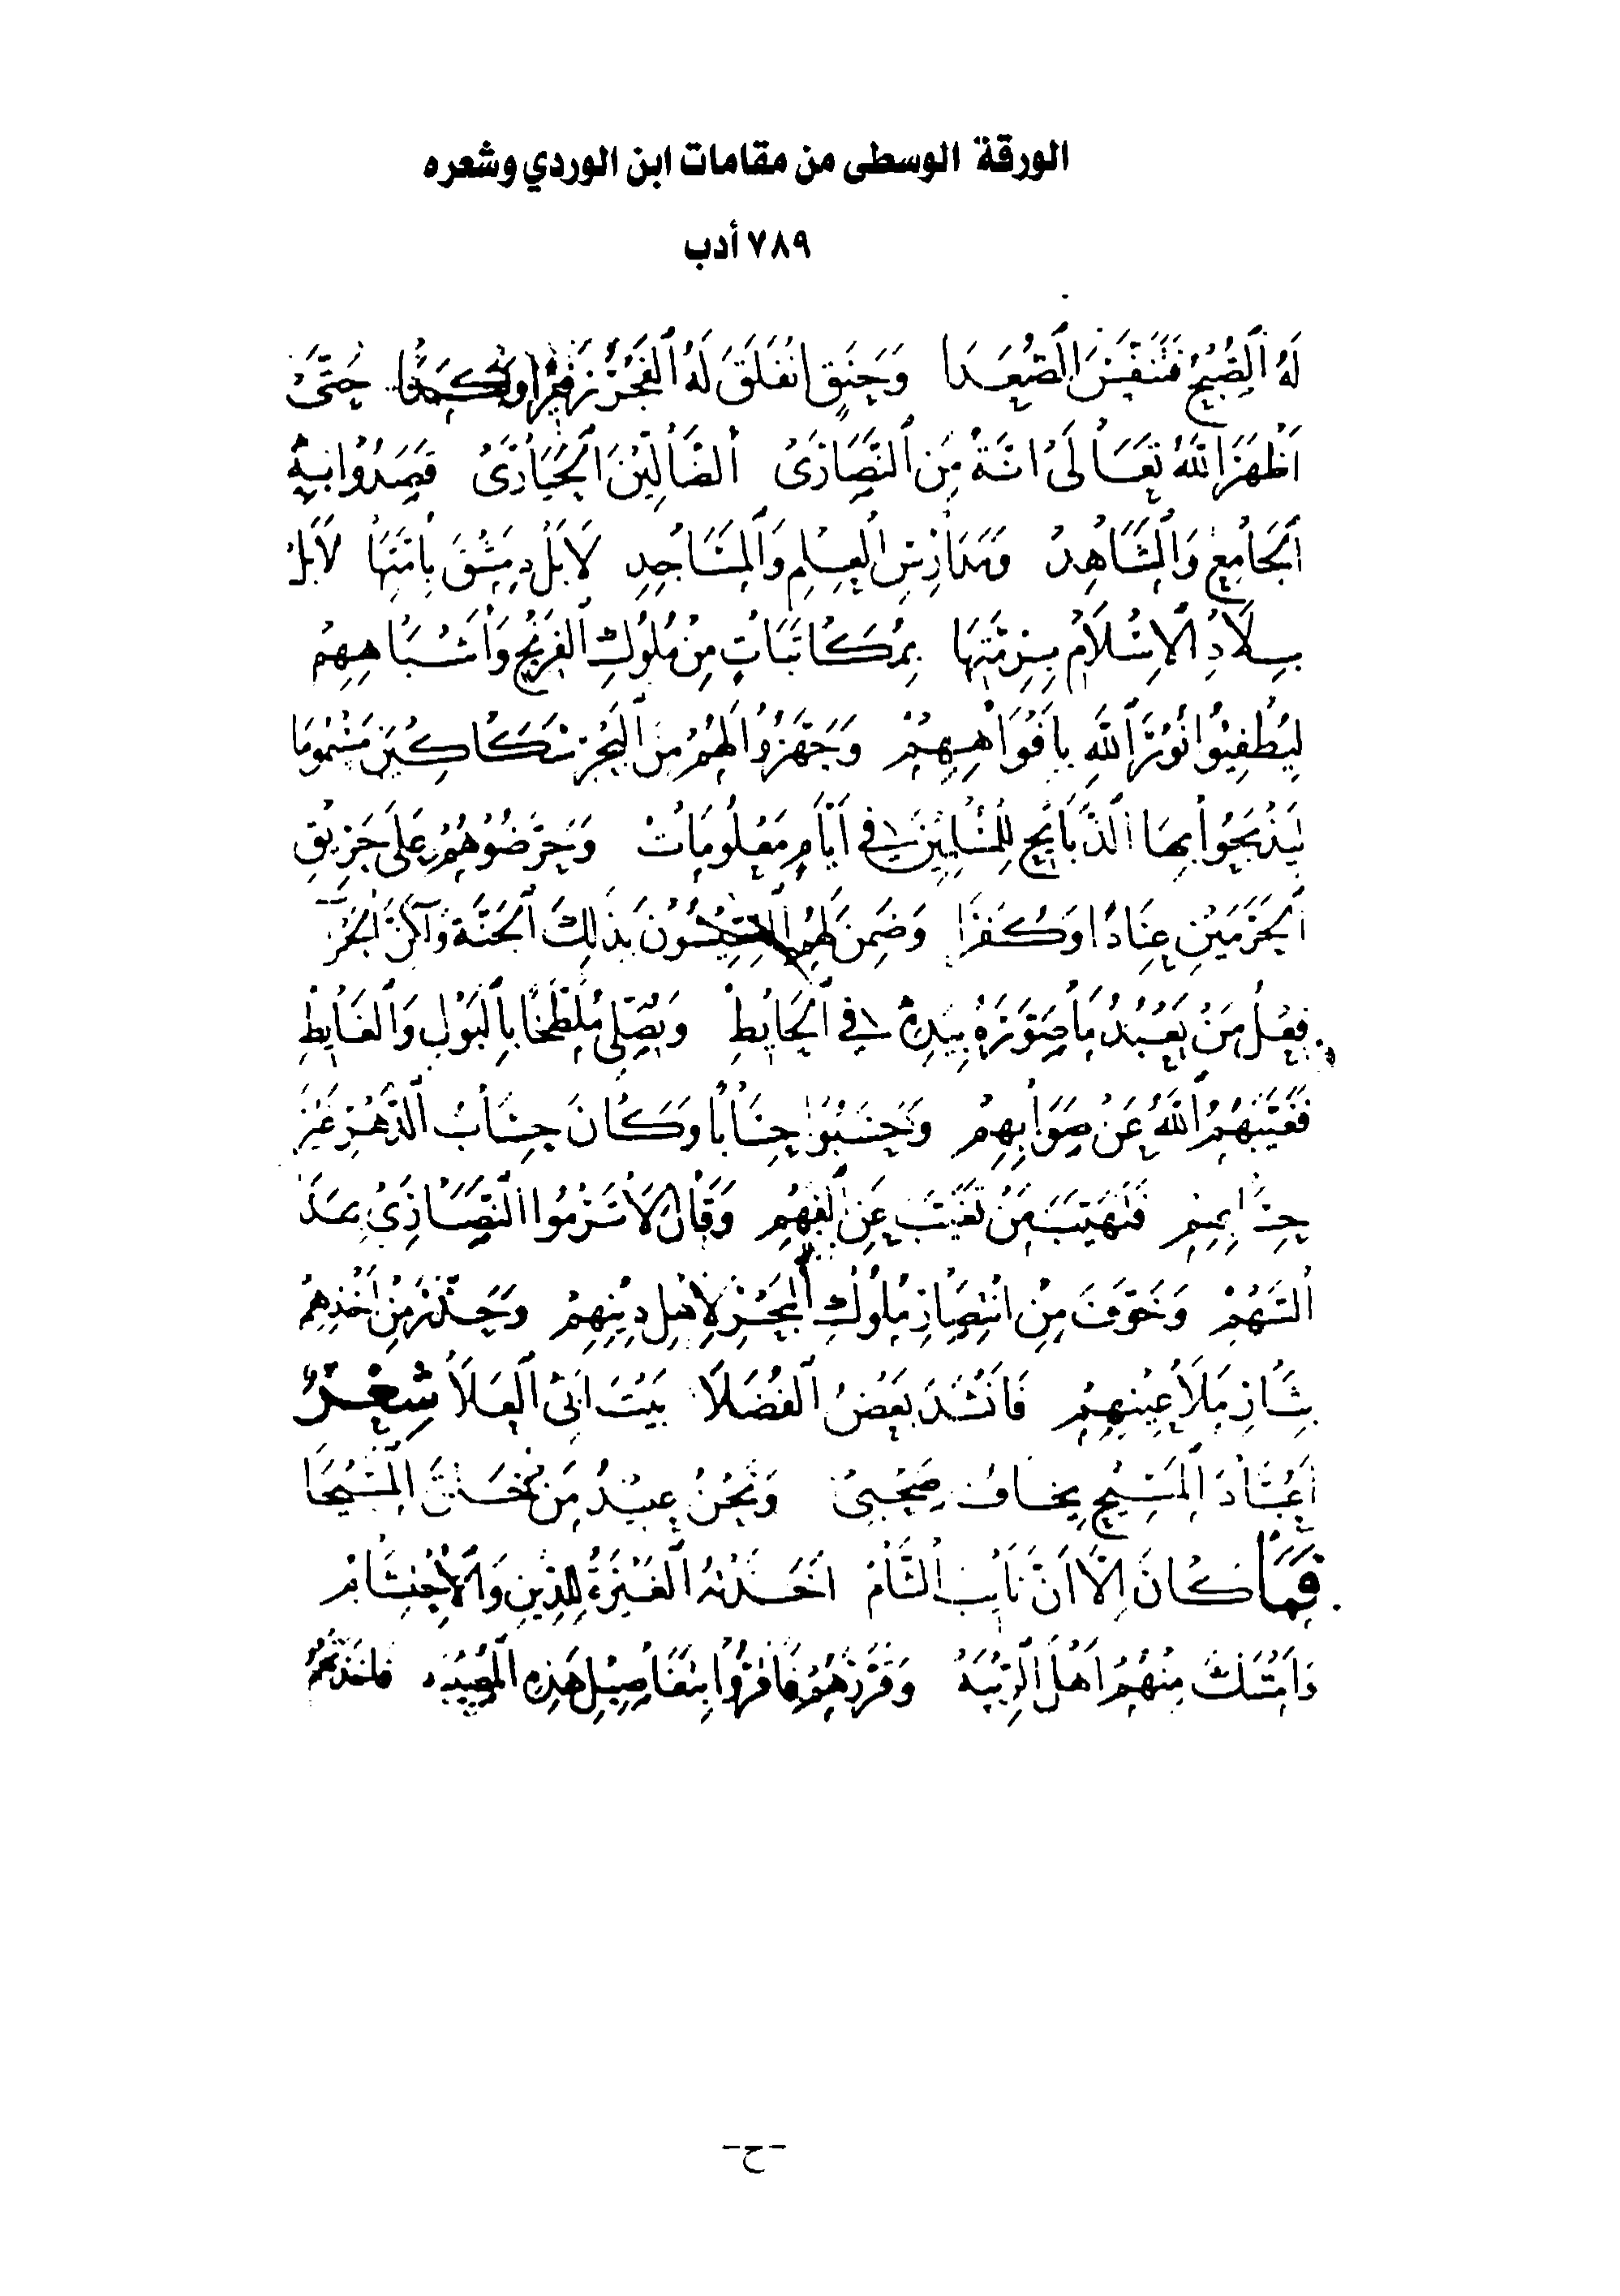 الورقة الوسطى من مقامات ابن الوردي وشعره
٧٨٩ أدب
لَهُ الصُّبْحُ فَتَنَفَّسَ الصُّعَدَا وَحَنِقٍ انْفَلَقَ لَهُ الفَجْرُ حَتَّى
أَظْهَرَ اللهُ تَعَالَى انَّهُ مِنَ النَّصَارَى الضَّالِّيْنَ الحَيَارَى قَصَدُوا بِهِ
الجَامِعَ وَالمَشَاهِدَ وَمَدَارِسَ العِلْمِ وَالمَسَاجِدِ لَا بَلْ دِمَشْقَ بِأُمَّتِهَا لَا بَلْ
بِلَادُ الاِسْلَامِ بِرِمَّتِهَا بِمُكَاتَبَاتٍ مِنْ مُلُوكِ الفَرَنْجِ وَأَشْبَاهِهِمْ
لِيُطْفِيُوا نُورَ اللهِ بِأَفْوَاهِهِمْ وَجَهَّزُوا لَهُمْ مِنَ البَحْرِ سَكَاكِيْنَ مَسْمُومَا
لِيَذْبَحُوا بِهَا الذَّبَايْحَ لِلمُسْلِمِيْنَ فِي أَيَّامٍ مَعْلُومَاتْ وَحَرَّضُوْهُمْ عَلَى حَرِيْقِ
الحَرَمَيْنِ عِنَادًا وَكُفْرَا وَضَمِنَ لَهُمُ القِسِّيْسُوْنَ بِذَلِكَ الجَنَّةَ وَآكَدَ الحَرَّ
فِعْلُ مَنْ يَعْبُدُ مَا صَوَّرَهُ بِيَدِهِ فِي الحَايِطِ وَيُصَلِّي مُلَطَّخًا بِالبَوْلِ وَالغَايِطِ
فَغَيَّبَهُمُ اللهُ عَنْ صَوَابِهِمْ وَحَسَبُوا حِسَابًا وَكَانَ حِسَابُ الدَّهْرِ غَيْرَ
حِسَابِهِمْ فَتَهَيَّبَ مَنْ تَغَيَّبَ عَنِ الفَهْمِ وَقَالَ لَا تَرْمُوا النَّصَارَى بِهَذَ
السَّهْمْ وَخَوَّفَ مِنْ انْتِصَارِ مُلُوْكِ البَحْرِ لِاَهْلِ دِيْنِهِمْ وَحَذَّرَ مِنْ اَخْذِهِمْ
بِثَارِ مَلَاعِيْنِهِمْ فَانْشَدَ بَعْضُ الفُضَلَا بَيْتَ ابَى العَلَا شِعْرٌ
اَعُبَّادَ المَسِيْحِ يخَافُ صَحْبِيْ وَنَحْنُ عَبِيْدُ مَن خَلَقَ المَسِيْحَا
فَمَا كَانَ اِلَّا اَنَّ نَايِبَ الشَّامْ اَخَذَتْهُ الغَيْرَةُ لِلدِّيْنِ وَالاِحْتِشَامْ
وَامْسَكَ مِنْهُمْ اَهْلَ الرِّيْبَهْ وَقَرَّرَهُمْ فَاقَرُّوا بِتَفَاصِيْلِ هَذِهِ المُصِيْبَه فَاخَذَتْهُمْ
-ح-